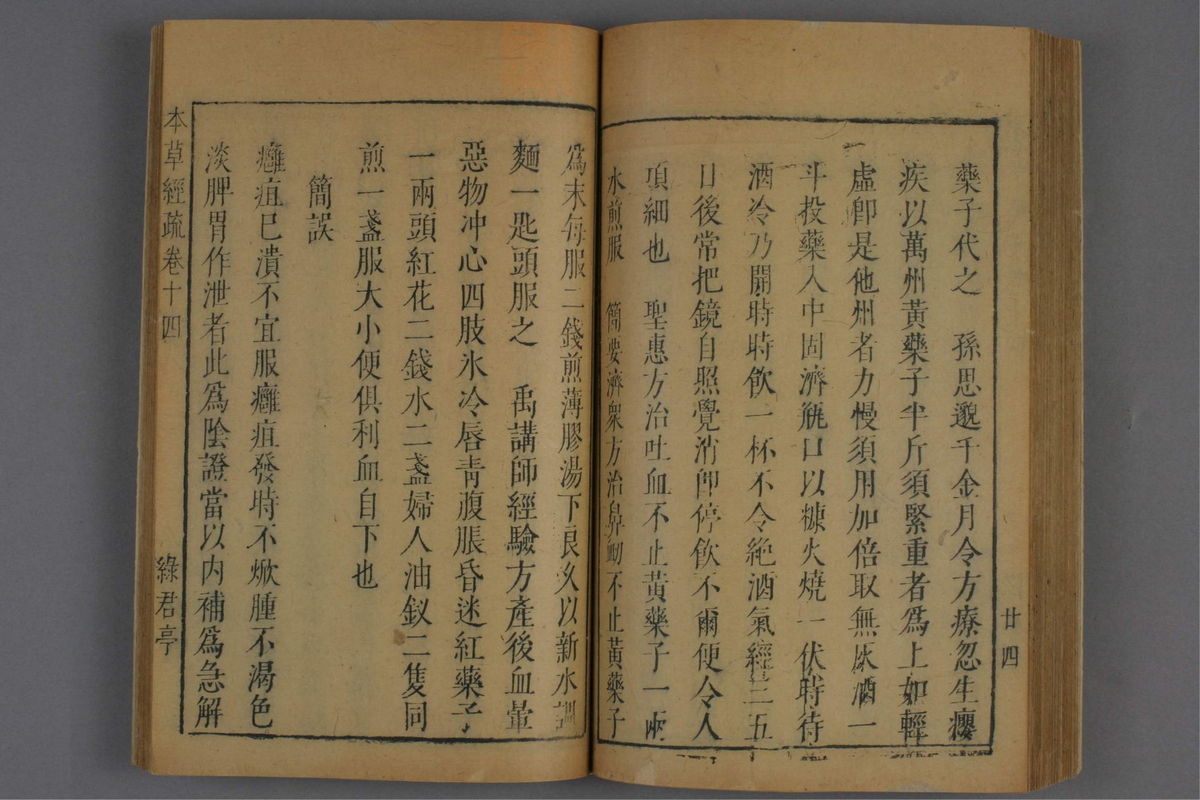 藥子代之　孫思邈千金月令方療忽生癭
疾以萬州黃藥子半斤須緊重者爲上如輕
虛卽是他州者力慢須用加倍取無灰酒一
斗投藥入中固濟瓶口以糠火燒一伏時待
酒冷乃開時時飲一杯不令絕酒氣經三五
日後常把鏡自照覺消卽停飲不爾便令人
項細也　聖惠方治吐血不止黃藥子一兩
水煎服　簡要濟衆方治鼻衂不止黃藥子
爲末每服二錢煎薄膠湯下良久以新水調
麵一匙頭服之　禹講師經驗方產後血暈
惡物冲心四肢氷冷唇靑腹脹昏迷紅藥子
一兩頭紅花二錢水二盞婦人油釵二隻同
煎一盞服大小便俱利血自下也
簡誤
癰疽已潰不宜服癰疽發時不焮腫不渴色
淡脾胃作泄者此爲陰證當以內補爲急解
廿四
本草經疏卷十四
綠君亭